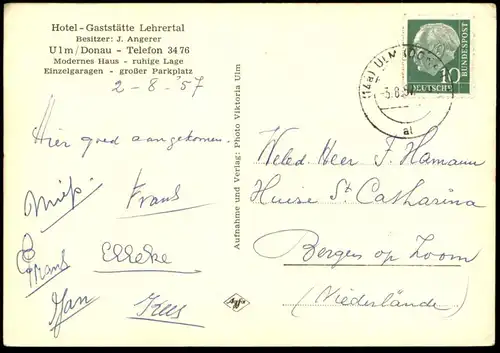 Hotel-Gaststätte Lehrertal
Besitzer: J. Angerer
Ulm/Donau - Telefon 3476
Modernes Haus - ruhige Lage
Einzelgaragen - großer Parkplatz
2-8-'57
Hier goed aangekomen.
Frans
Elleke
Frans
Jan
Kees
Aufnahme und Verlag: Photo Viktoria Ulm
Agfa
10
DEUTSCHE
BUNDESPOST
(14a) ULM (DONAU)
-3.8.57
al
Weled. Heer F. Hamann
Huize St. Catharina
Bergen op Zoom
(Niederlände)